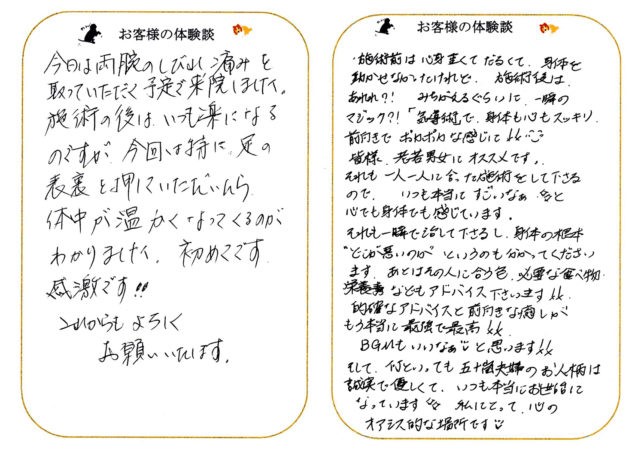 お客様の体験談
今日は両腕のしびれ痛みを
取っていただく予定で来院しました。
施術の後は、いつも楽になる
のですが、今回は特に、足の
表裏を押していただいたら
体中が温かくなってくるのが
わかりました。初めてです
感激です!!
これからもよろしく
お願いいたします。
お客様の体験談
・施術前は心身重くてだるくて、身体を
動かせなかったけれど、施術後は、
あれれ?! みちがえるぐらいに、一瞬の
マジック?!「気導術」で、身体も心もスッキリ
前向きでポカポカな感じに
皆様、老若男女にオススメです。
それも一人一人に合った施術をして下さる
ので、いつも本当にすごいなぁと
心でも身体でも感じています。
それも一瞬で治して下さるし、身体の根本
"どこが悪いのか"というのも分かってください
ます。あとはその人に合う色、必要な食べ物・
栄養素などもアドバイス下さいます!!
的確なアドバイスと前向きな癒しが
もう本当に最強で最高!!
BGMもいいなぁと思います!!
そして、何といっても五十嵐夫婦のお人柄は
誠実で優しくて、いつも本当にお世話に
なっています 私にとって、心の
オアシス的な場所です